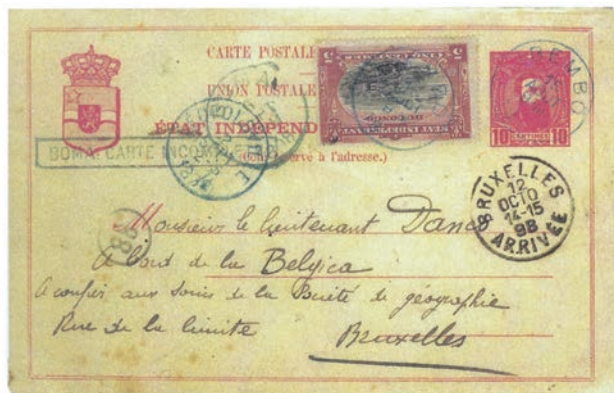 CARTE POSTALE
UNION POSTALE
ÉTAT INDÉPEND
(Côté réservé à l'adresse.)
BOMA. CARTE INCOMPLETE
10 CENTIMES 10
BRUXELLES
12
OCTO
14-15
98
ARRIVÉE
Monsieur le lieutenant Danco
À bord de la Belgica
A confier aux soins de la Société de géographie
Rue de la limite
Bruxelles